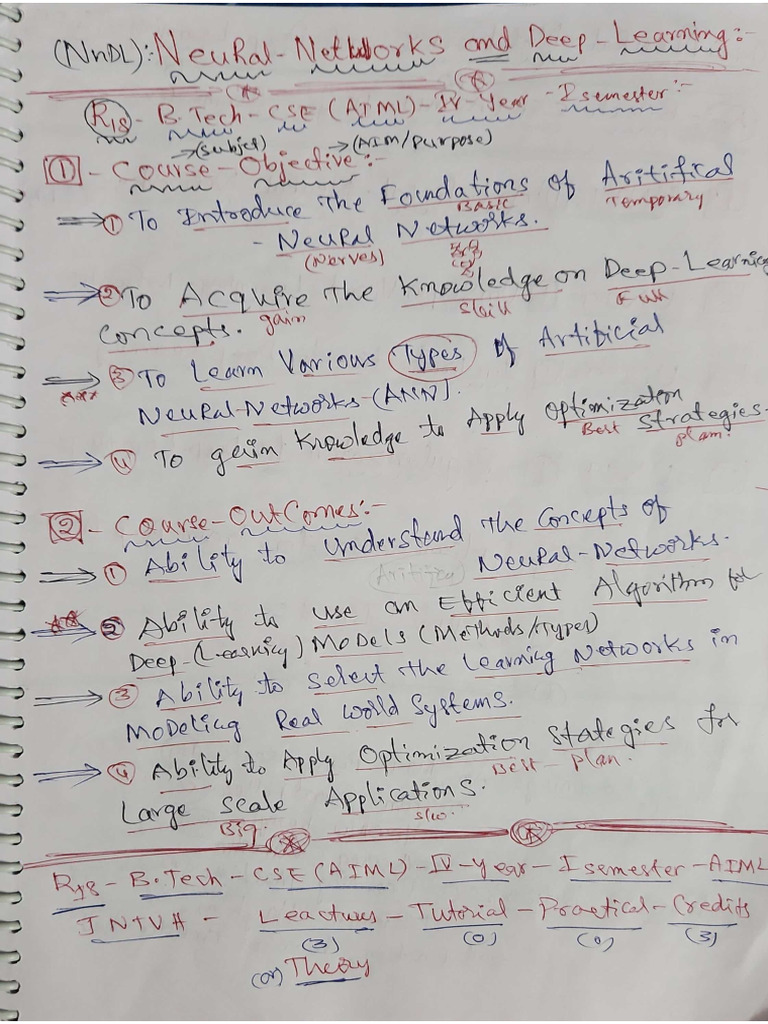 (NnDL): Neural-Networks and Deep-Learning:-
R18 - B.Tech - CSE (AIML) - IV - Year - I semester:-
→(Subject) →(AIM/Purpose)
1 - Course - Objective:-
⇒ 1 To Introduce The Foundations of Aritifical
Basic Temporary
- Neural Networks.
(Nerves)
⇒ 2 To Acquire The Knowledge on Deep-Learning
gain Skill Full
Concepts.
⇒ 3 To Learn Various Types of Artificial
*** Neural-Networks-(ANN).
⇒ 4 To gain Knowledge to Apply Optimization Strategies-
Best plan.
2 - Course-OutComes:-
⇒ 1 Ability to Understand The Concepts of
Neural-Networks.
⇒ 2 Ability to use an Efficient Algorithm for
** Deep-(Learning) Models (Methods/Types)
⇒ 3 Ability to Select the Learning Networks in
Modeling Real World Systems.
⇒ 4 Ability to Apply Optimization Stategies for
Best - plan.
Large scale Applications.
Big. s/w.
R18 - B.Tech - CSE (AIML) - IV - Year - I semester - AIML
JNTUH - Leactures - Tutorial - Practical - Credits
(3) (0) (0) (3)
(or) Theory